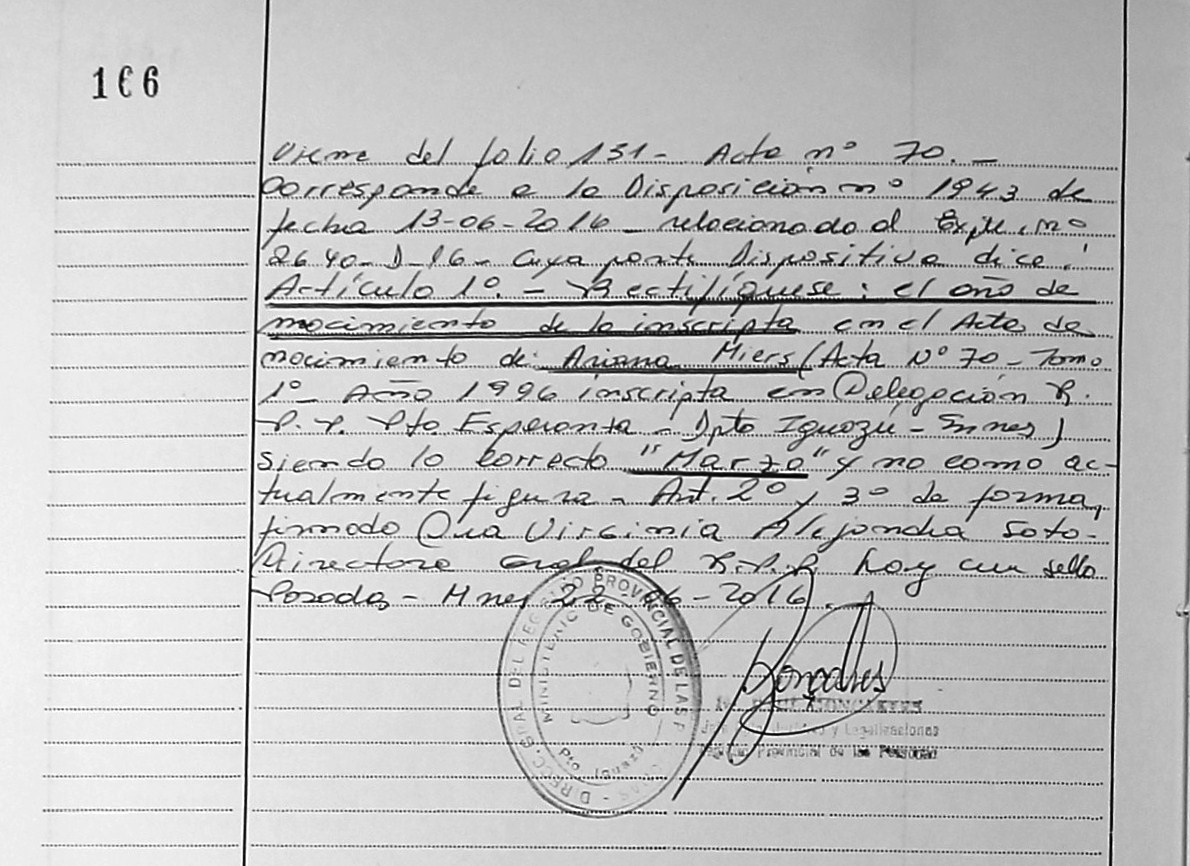 166
Viene del folio 151- Acta nº 70. -
Corresponde a la Disposición nº 1943 de
fecha 13-06-2016 - relacionado al Expte. nº
2640-D-16- cuya parte Dispositiva dice:
Artículo 1º. - Rectifíquese: el año de
nacimiento de la inscripta en el Acta de
nacimiento de: Ariana Miers (Acta Nº 70 - Tomo
1º- Año 1996 inscripta en Delegación R.
P. P. Pto Esperanza - Dpto Iguazú - Mnes)
siendo lo correcto "Marzo" y no como ac-
tualmente figura - Art. 2º y 3º de forma,
firmado Dra Virginia Alejandra Soto-
Directora Gral. del R.P.P. hay un sello
Posadas - Mnes 22-06-2016.
DIRECC. GRAL DEL REGISTRO PROVINCIAL DE LAS P
MINISTERIO DE GOBIERNO
Pto. Iguazú
y Legalizaciones
Provincial de las Personas